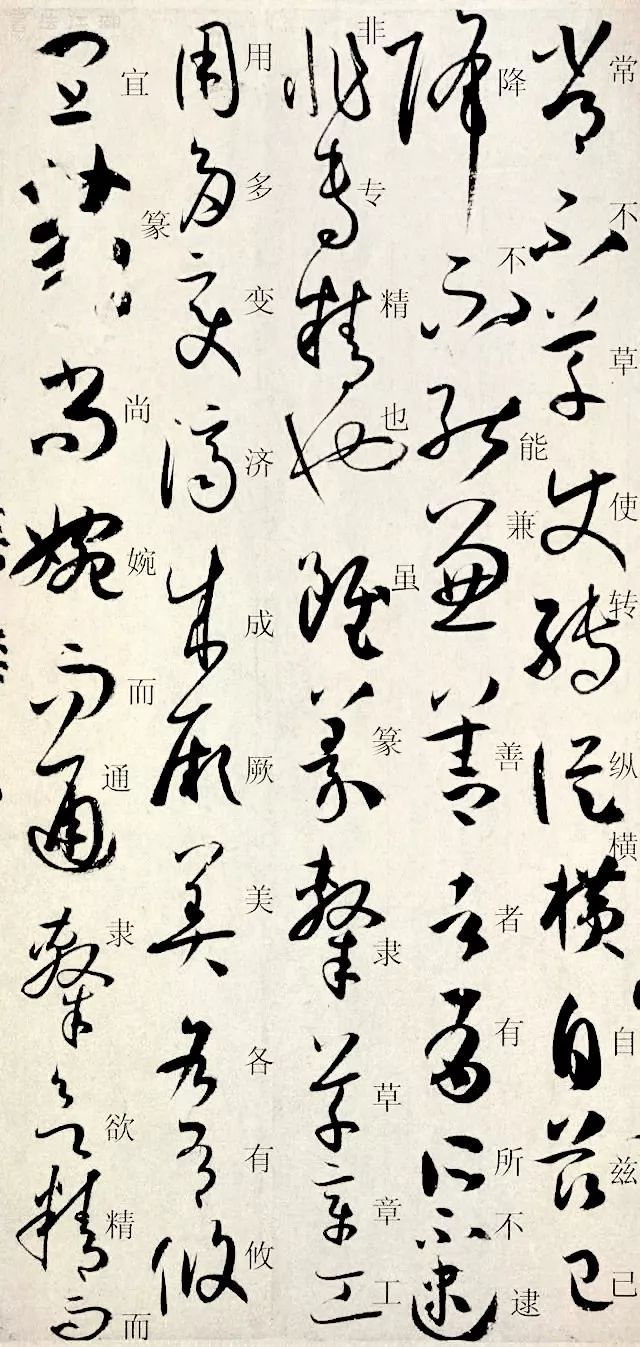 常不草使转纵横自兹己
降不能兼善者有所不逮
非专精也虽篆隶草章工
用多变济成厥美各有攸
宜篆尚婉而通隶欲精而